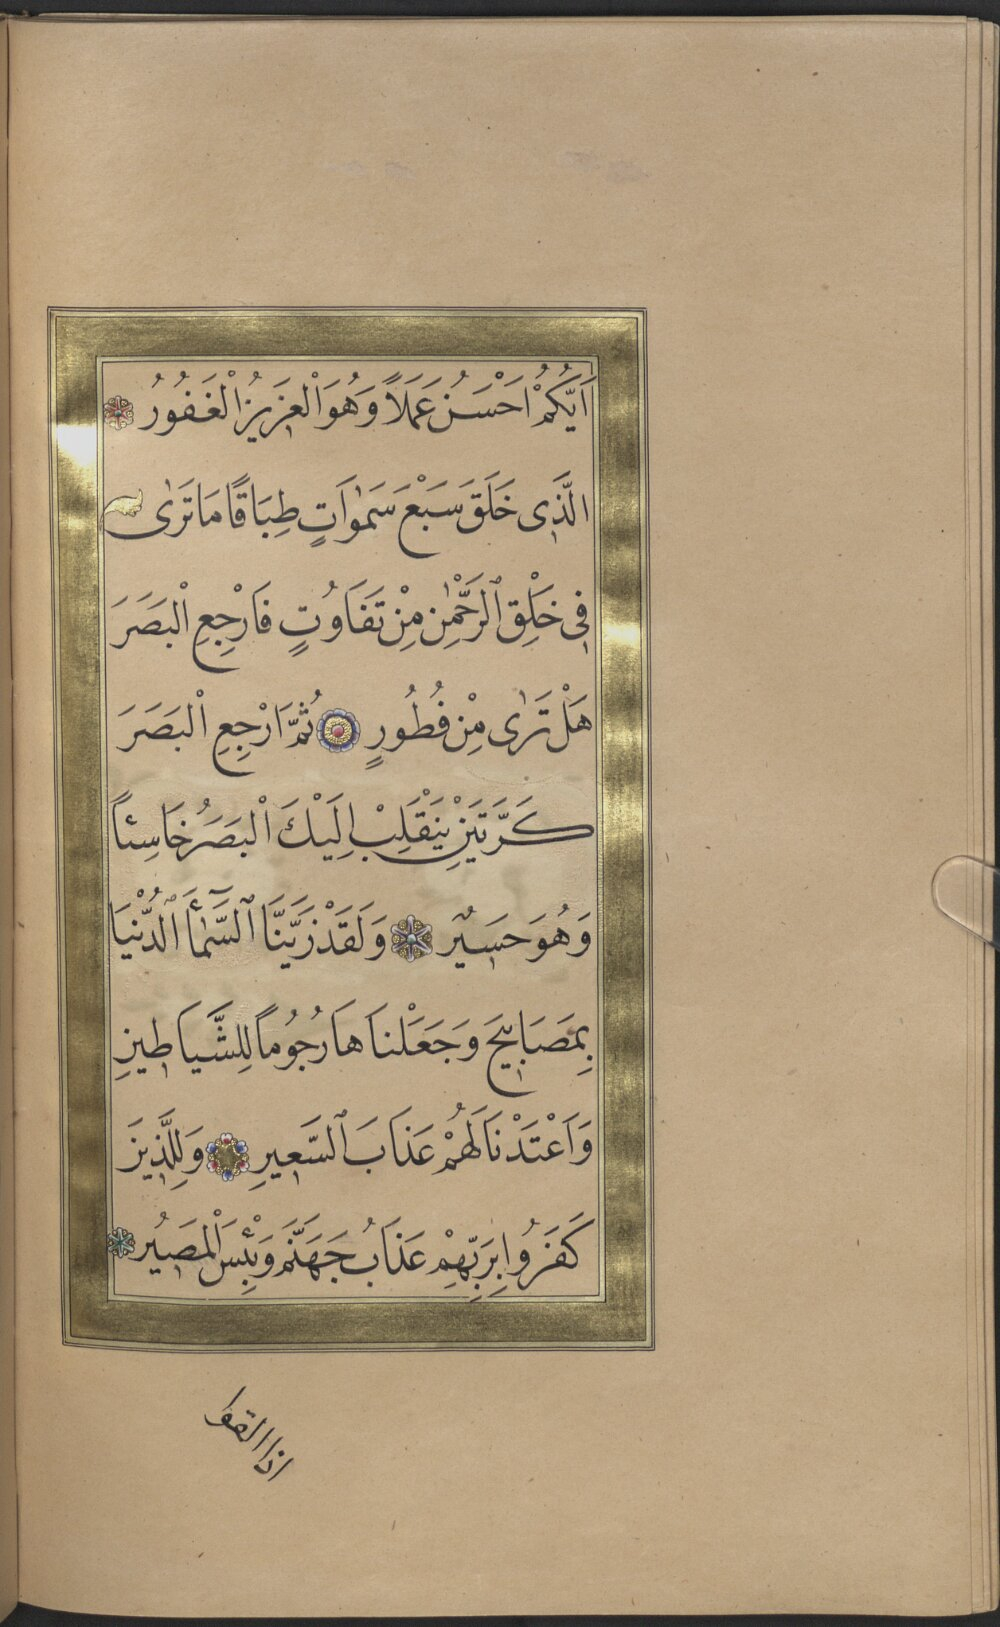 اَيُّكُمْ اَحْسَنُ عَمَلاً وَهُوَ الْعَزِيزُ الْغَفُورُ
الَّذِى خَلَقَ سَبْعَ سَمٰوَاتٍ طِبَاقًا مَا تَرٰى
فِى خَلْقِ الرَّحْمٰنِ مِنْ تَفَاوُتٍ فَارْجِعِ الْبَصَرَ
هَلْ تَرٰى مِنْ فُطُورٍ ثُمَّ ارْجِعِ الْبَصَرَ
كَرَّتَيْنِ يَنْقَلِبْ اِلَيْكَ الْبَصَرُ خَاسِئاً
وَهُوَ حَسِيرٌ وَلَقَدْ زَيَّنَّا السَّمَآءَ الدُّنْيَا
بِمَصَابِيحَ وَجَعَلْنَاهَا رُجُوماً لِلشَّيَاطِينِ
وَاَعْتَدْنَا لَهُمْ عَذَابَ السَّعِيرِ وَلِلَّذِينَ
كَفَرُوا بِرَبِّهِمْ عَذَابُ جَهَنَّمَ وَبِئْسَ الْمَصِيرُ
اذا القوا